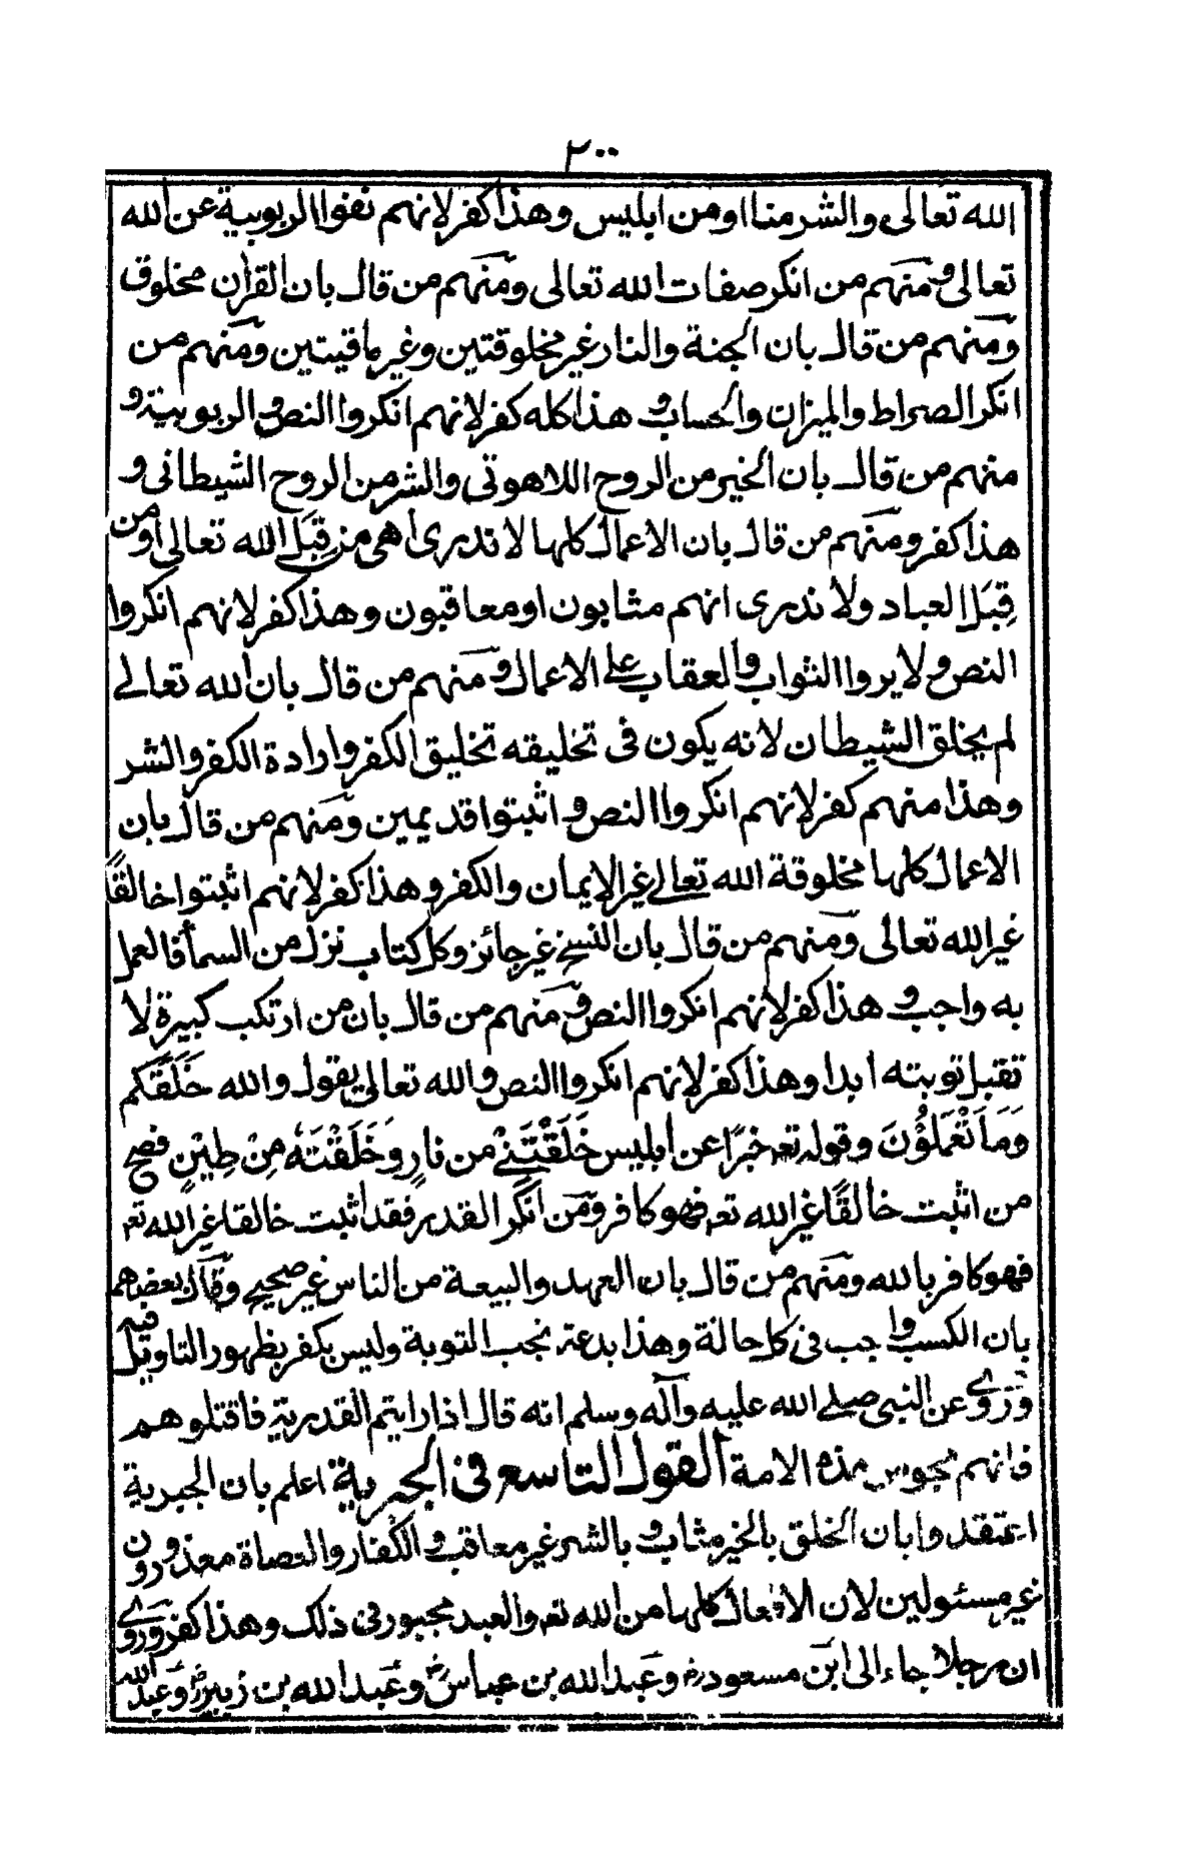 ٢٠٠
الله تعالى والشر منا او من ابليس وهذا كفر لانهم نفوا الربوبية عن الله
تعالى ومنهم من انكر صفات الله تعالى ومنهم من قال بان القرآن مخلوق
ومنهم من قال بان الجنة والنار غير مخلوقتين وغير باقيتين ومنهم من
انكر الصراط والميزان والحساب وهذا كله كفر لانهم انكروا النص والربوبية و
منهم من قال بان الخير من الروح اللاهوتى والشر من الروح الشيطانى و
هذا كفر ومنهم من قال بان الاعمال كلها لا ندرى أهى من قِبَل الله تعالى او من
قِبَل العباد ولا ندرى انهم مثابون او معاقبون وهذا كفر لانهم انكروا
النص ولا يروا الثواب والعقاب على الاعمال ومنهم من قال بان الله تعالے
لم يخلق الشيطان لانه يكون فى تخليقه تخليق الكفر وارادة الكفر والشر
وهذا منهم كفر لانهم انكروا النص واثبتوا قديمين ومنهم من قال بان
الاعمال كلها مخلوقة الله تعالے غير الايمان والكفر وهذا كفر لانهم اثبتوا خالقًا
غير الله تعالى ومنهم من قال بان النسخ غير جائز وكل كتاب نزل من السمأ فالعمل
به واجب وهذا كفر لانهم انكروا النص ومنهم من قال بان من ارتكب كبيرة لا
تقبل توبته ابدا وهذا كفر لانهم انكروا النص والله تعالى يقول والله خَلَقَكم
وَمَا تَعْمَلُوْنَ وقوله تعه خبرًا عن ابليس خَلَقْتَنِىْ من نارٍ وَخَلَقْتَهٗ مِنْ طِيْنٍ فصح
من اثبت خالقًا غير الله تعه فهو كافر ومن انكر القدر فقد اثبت خالقا غير الله تعه
فهو كافر بالله ومنهم من قال بان العهد والبيعة من الناس غير صحيح وقال بعضهم
بان الكسب واجب فى كل حالة وهذا بدعة تجب التوبة وليس بكفر بظهور التاويل فيه
ورُوى عن النبى صلے الله عليه وآله وسلم انه قال اذا رايتم القدرية فاقتلوهم
فانهم مجوس هذه الامة القول التاسع فى الجبرية اعلم بان الجبرية
اعتقدوا بان الخلق بالخير مثاب وبالشر غير معاقب والكفار والعصاة معذورون
غير مسئولين لان الافعال كلها من الله تعه والعبد مجبور فى ذلك وهذا كفر وروى
ان رجلا جاء الى ابن مسعود رض وعبد الله بن عباس رض وعبد الله بن زبير رض وعبد الله